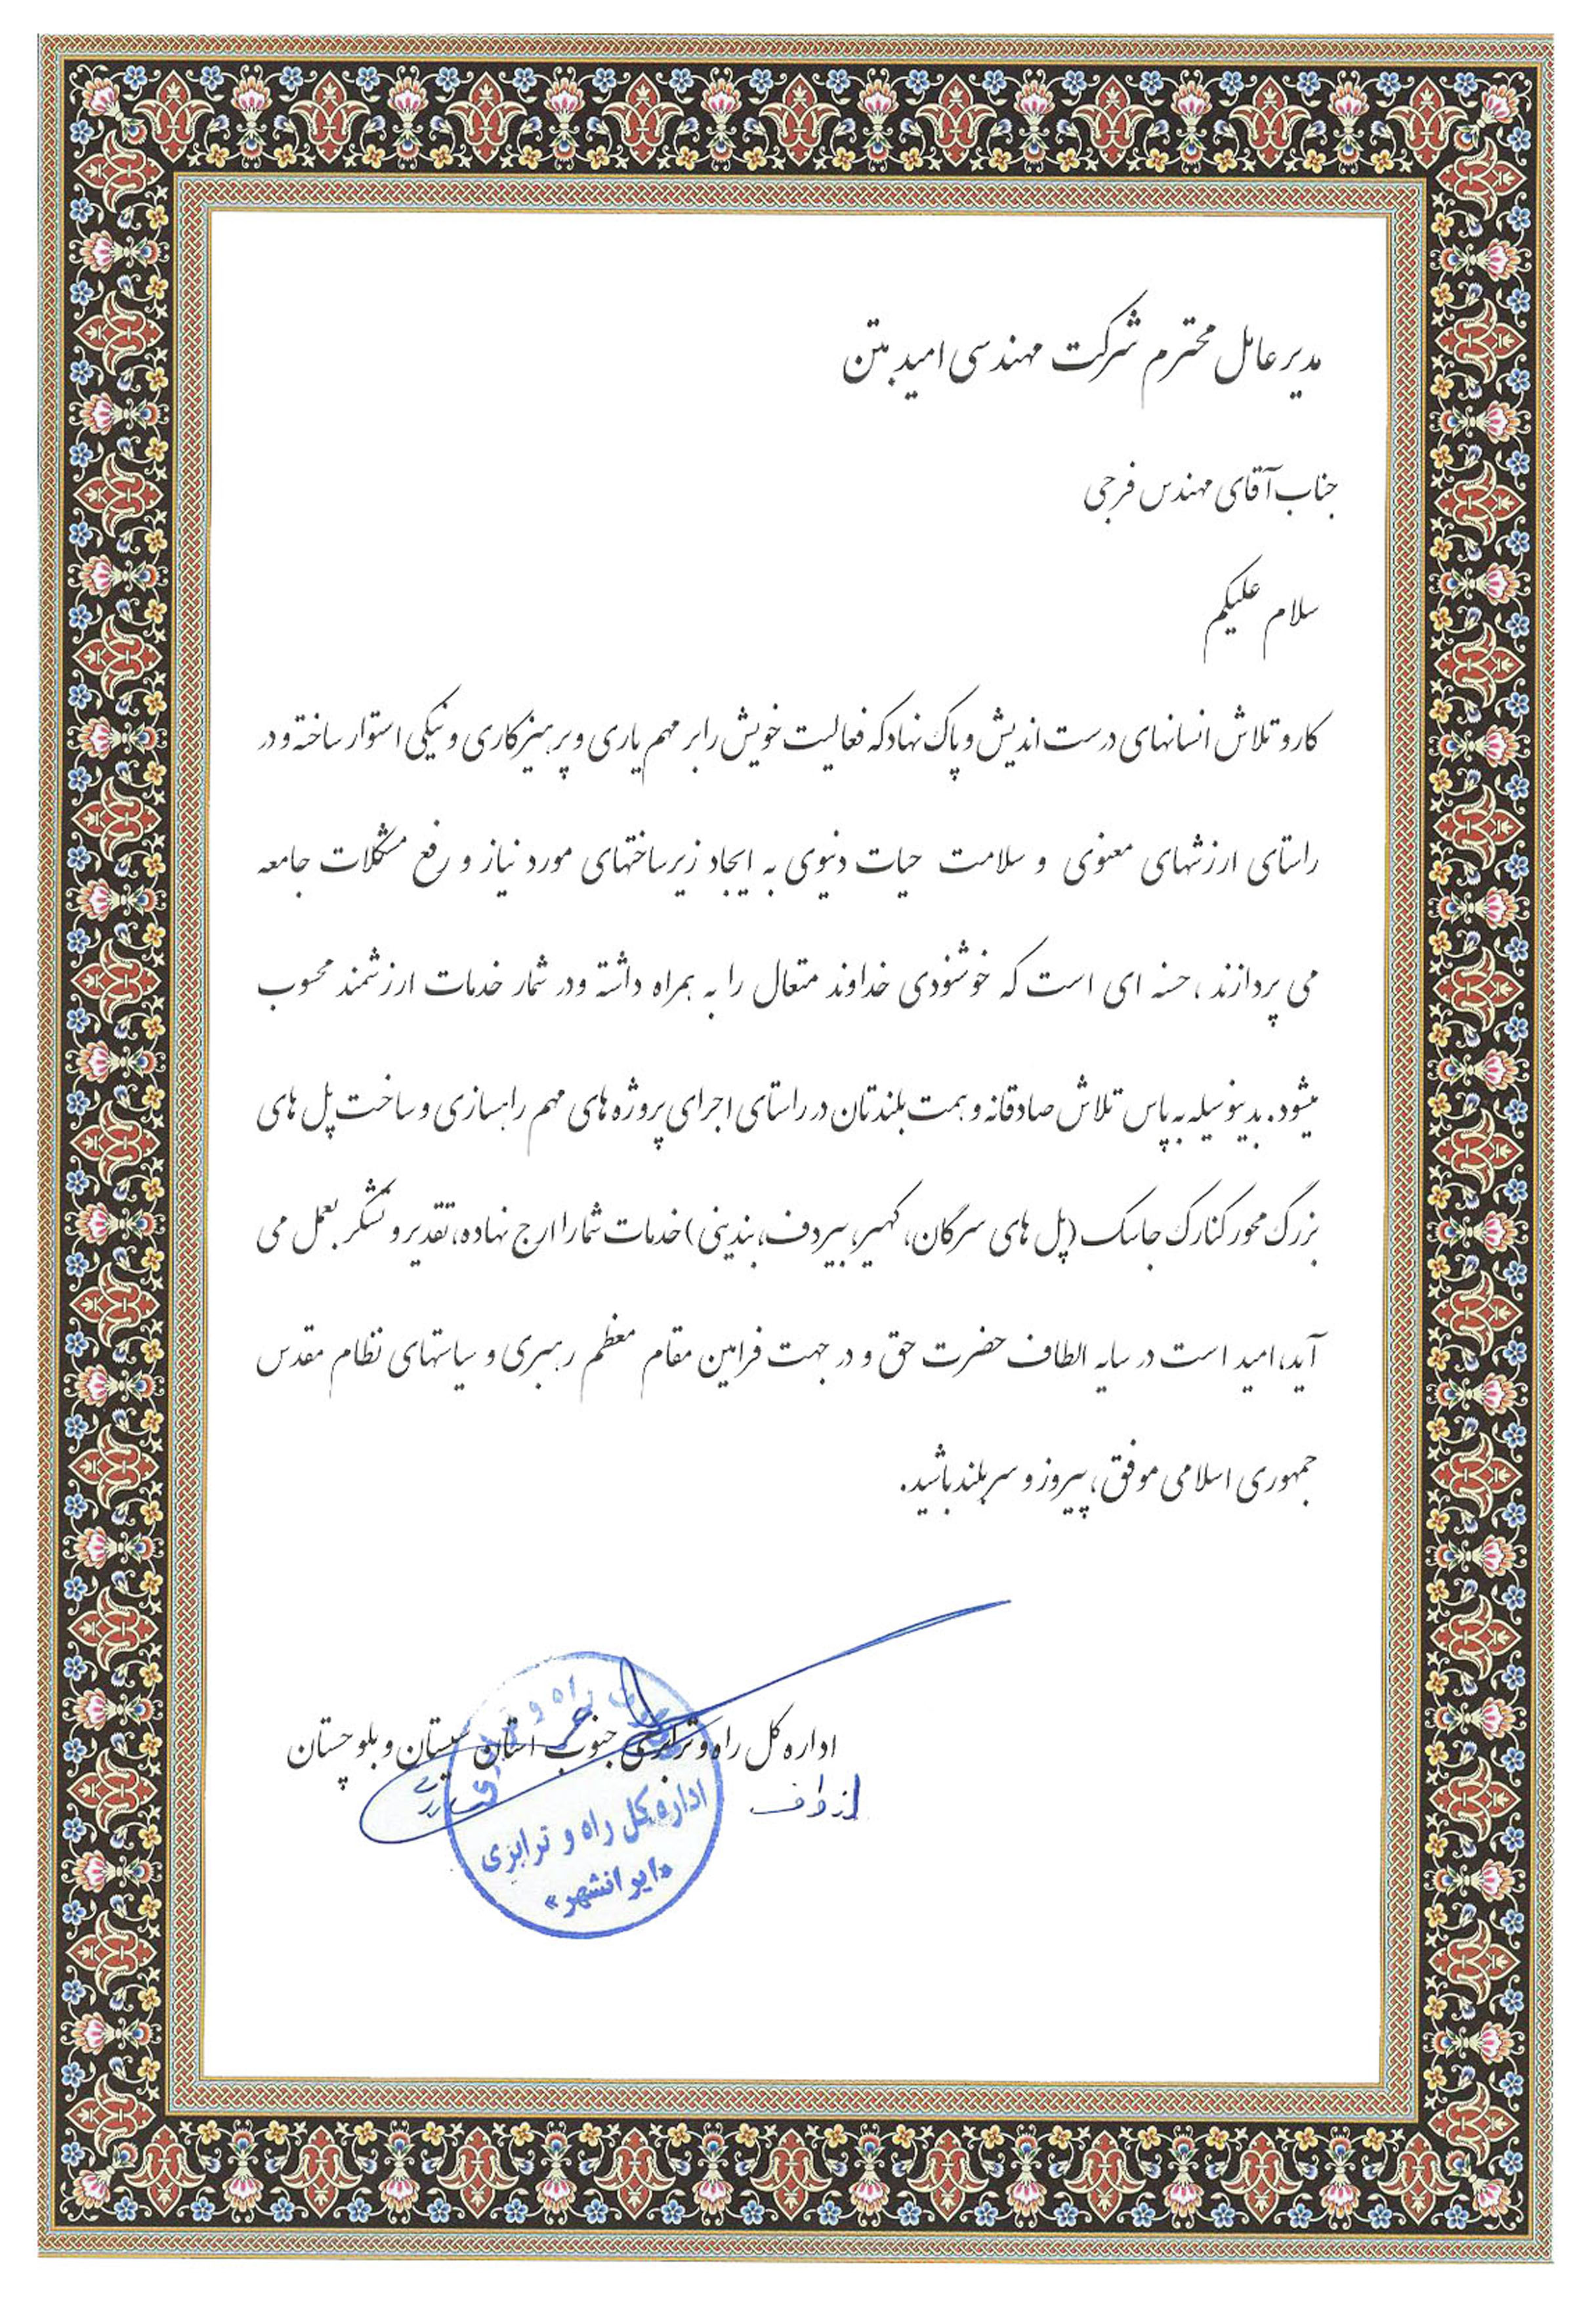 مدیر عامل محترم شرکت مهندسی امید بتن
جناب آقای مهندس فرجی
سلام علیکم
کار و تلاش انسانهای درست اندیش و پاک نهاد که فعالیت خویش را بر مهم یاری و پرهیزکاری و نیکی استوار ساخته و در
راستای ارزشهای معنوی و سلامت حیات دنیوی به ایجاد زیرساختهای مورد نیاز و رفع مشکلات جامعه
می پردازند ، حسنه ای است که خوشنودی خداوند متعال را به همراه داشته ودر شمار خدمات ارزشمند محسوب
میشود. بدینوسیله به پاس تلاش صادقانه و همت بلندتان در راستای اجرای پروژه های مهم راهسازی و ساخت پل های
بزرگ محور کنارک جاسک (پل های سرگان، کهیر، بیردف، بندینی) خدمات شما را ارج نهاده، تقدیر و تشکر بعمل می
آید، امید است در سایه الطاف حضرت حق و در جهت فرامین مقام معظم رهبری و سیاستهای نظام مقدس
جمهوری اسلامی موفق ، پیروز و سربلند باشید.
اداره کل راه و ترابری جنوب استان سیستان و بلوچستان
از طرف
اداره کل راه و ترابری
«ایرانشهر»